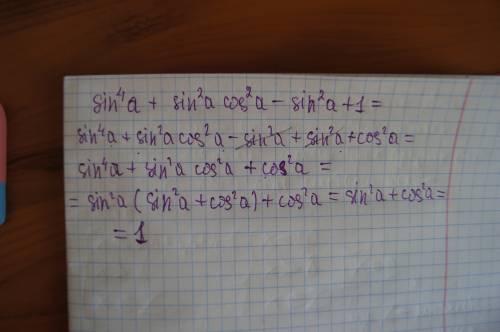 sin⁴a + sin²a cos²a - sin²a + 1 =
sin⁴a + sin²a cos²a - sin²a + sin²a + cos²a =
sin⁴a + sin²a cos²a + cos²a =
= sin²a (sin²a + cos²a) + cos²a = sin²a + cos²a =
= 1